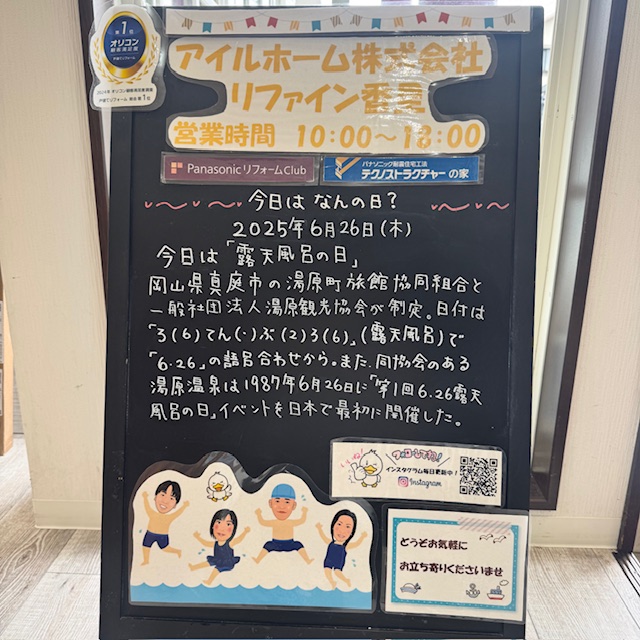 第1位
オリコン
顧客満足度
戸建てリフォーム
2024年 オリコン顧客満足度調査
戸建てリフォーム 総合 第1位
アイルホーム株式会社
リファイン香里
営業時間 10:00～18:00
Panasonic リフォーム Club
パナソニック耐震住宅工法
テクノストラクチャーの家
今日は なんの日？
2025年6月26日(木)
今日は「露天風呂の日」
岡山県真庭市の湯原町旅館協同組合と
一般社団法人湯原観光協会が制定。日付は
「ろ(6)てん(・)ぶ(2)ろ(6)」(露天風呂)で
「6.26」の語呂合わせから。また、同協会のある
湯原温泉は1987年6月26日に「第1回6.26露天
風呂の日」イベントを日本で最初に開催した。
フォローしてね！
インスタグラム毎日更新中！
Instagram
どうぞお気軽に
お立ち寄りくださいませ